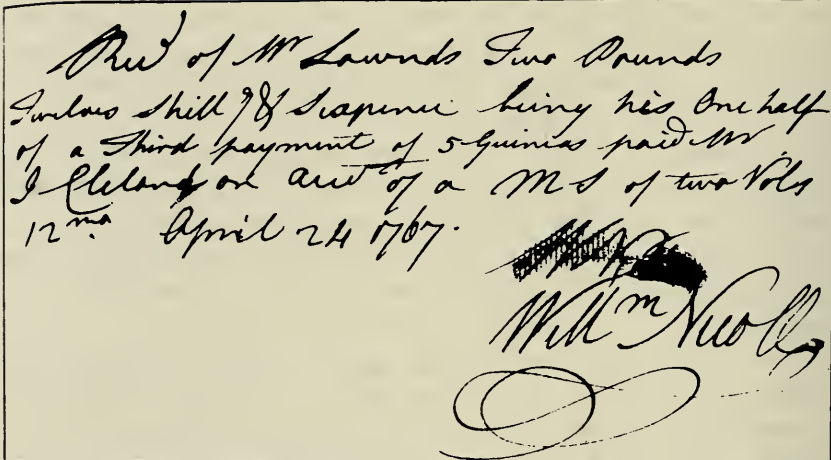 Recd of Mr Lownds Two Pounds
Twelve Shillgs & Sixpence being his One half
of a Third payment of 5 Guineas paid Mr
J Cleland on acct of a MS of two Vols
12mo. April 24 1767.
Willm Nicoll